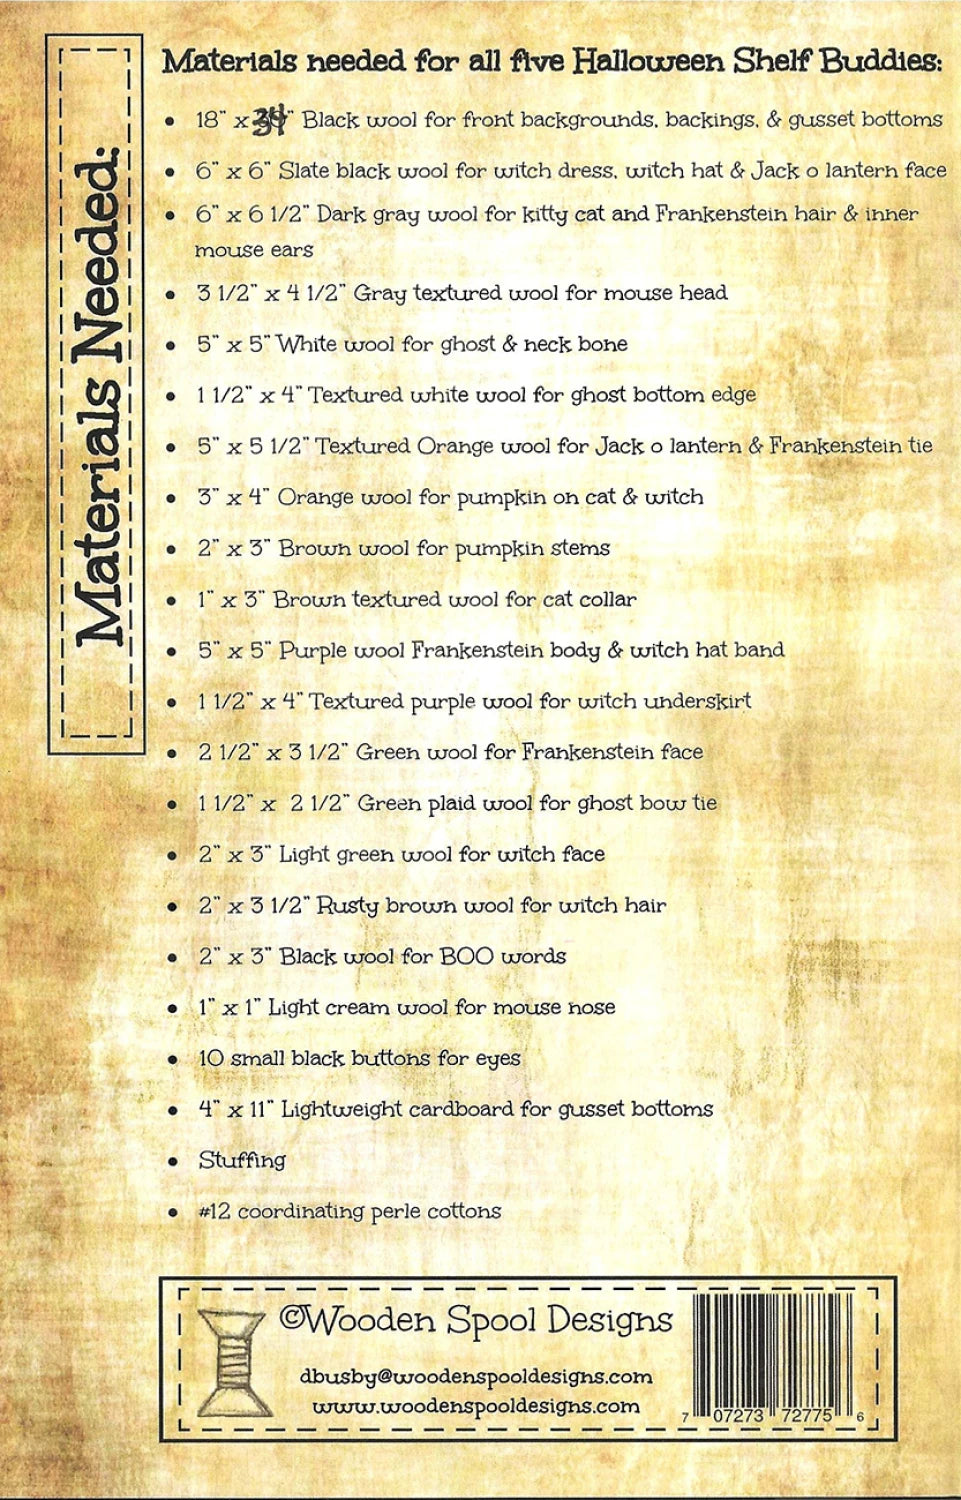 Materials Needed:
Materials needed for all five Halloween Shelf Buddies:
• 18" x 34" Black wool for front backgrounds, backings, & gusset bottoms
• 6" x 6" Slate black wool for witch dress, witch hat & Jack o lantern face
• 6" x 6 1/2" Dark gray wool for kitty cat and Frankenstein hair & inner
mouse ears
• 3 1/2" x 4 1/2" Gray textured wool for mouse head
• 5" x 5" White wool for ghost & neck bone
• 1 1/2" x 4" Textured white wool for ghost bottom edge
• 5" x 5 1/2" Textured Orange wool for Jack o lantern & Frankenstein tie
• 3" x 4" Orange wool for pumpkin on cat & witch
• 2" x 3" Brown wool for pumpkin stems
• 1" x 3" Brown textured wool for cat collar
• 5" x 5" Purple wool Frankenstein body & witch hat band
• 1 1/2" x 4" Textured purple wool for witch underskirt
• 2 1/2" x 3 1/2" Green wool for Frankenstein face
• 1 1/2" x 2 1/2" Green plaid wool for ghost bow tie
• 2" x 3" Light green wool for witch face
• 2" x 3 1/2" Rusty brown wool for witch hair
• 2" x 3" Black wool for BOO words
• 1" x 1" Light cream wool for mouse nose
• 10 small black buttons for eyes
• 4" x 11" Lightweight cardboard for gusset bottoms
• Stuffing
• #12 coordinating perle cottons
©Wooden Spool Designs
dbusby@woodenspooldesigns.com
www.woodenspooldesigns.com
7 07273 72775 6